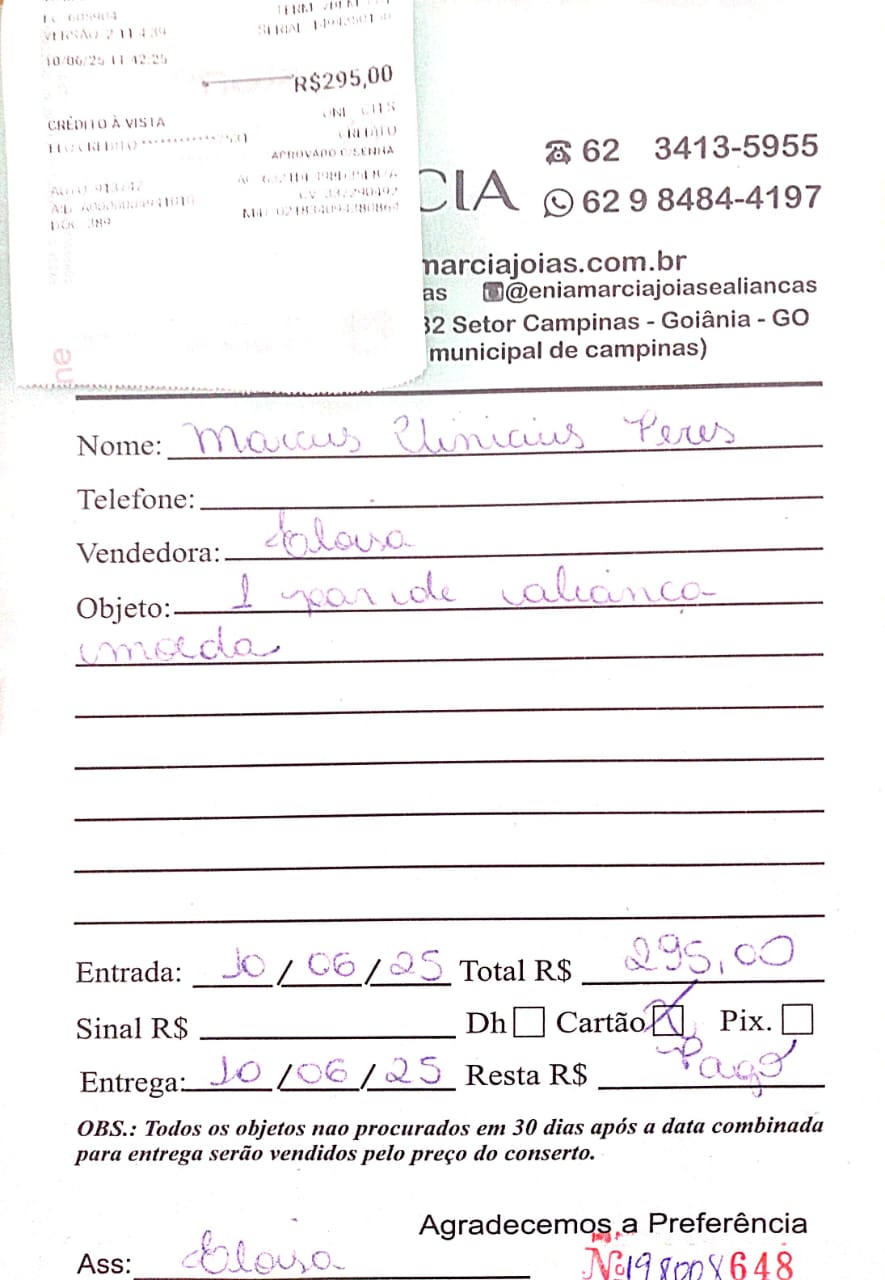 VERSÃO 2.11.4.39
10/06/25 11:42:25
R$295,00
CRÉDITO À VISTA
CRÉDITO
APROVADO C/SENHA
CIA
62 3413-5955
62 9 8484-4197
marciajoias.com.br
as @eniamarciajoiasealiancas
32 Setor Campinas - Goiânia - GO
municipal de campinas)
Nome: Marcus Vinicius Peres
Telefone:
Vendedora: Eloisa
Objeto: 1 par de aliança
moeda
Entrada: 10/06/25 Total R$ 295,00
Sinal R$ Dh Cartão X Pix.
Entrega: 10/06/25 Resta R$ Pago
OBS.: Todos os objetos nao procurados em 30 dias após a data combinada
para entrega serão vendidos pelo preço do conserto.
Agradecemos a Preferência
Ass: Eloisa